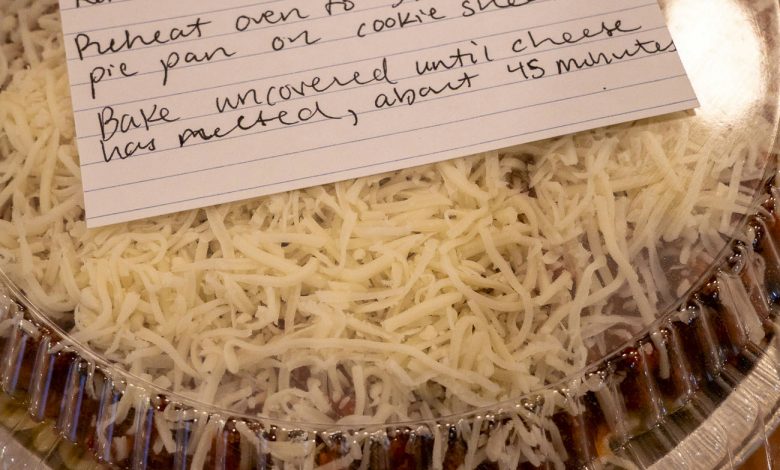 Preheat oven to
pie pan on cookie
Bake uncovered until cheese
has melted, about 45 minutes